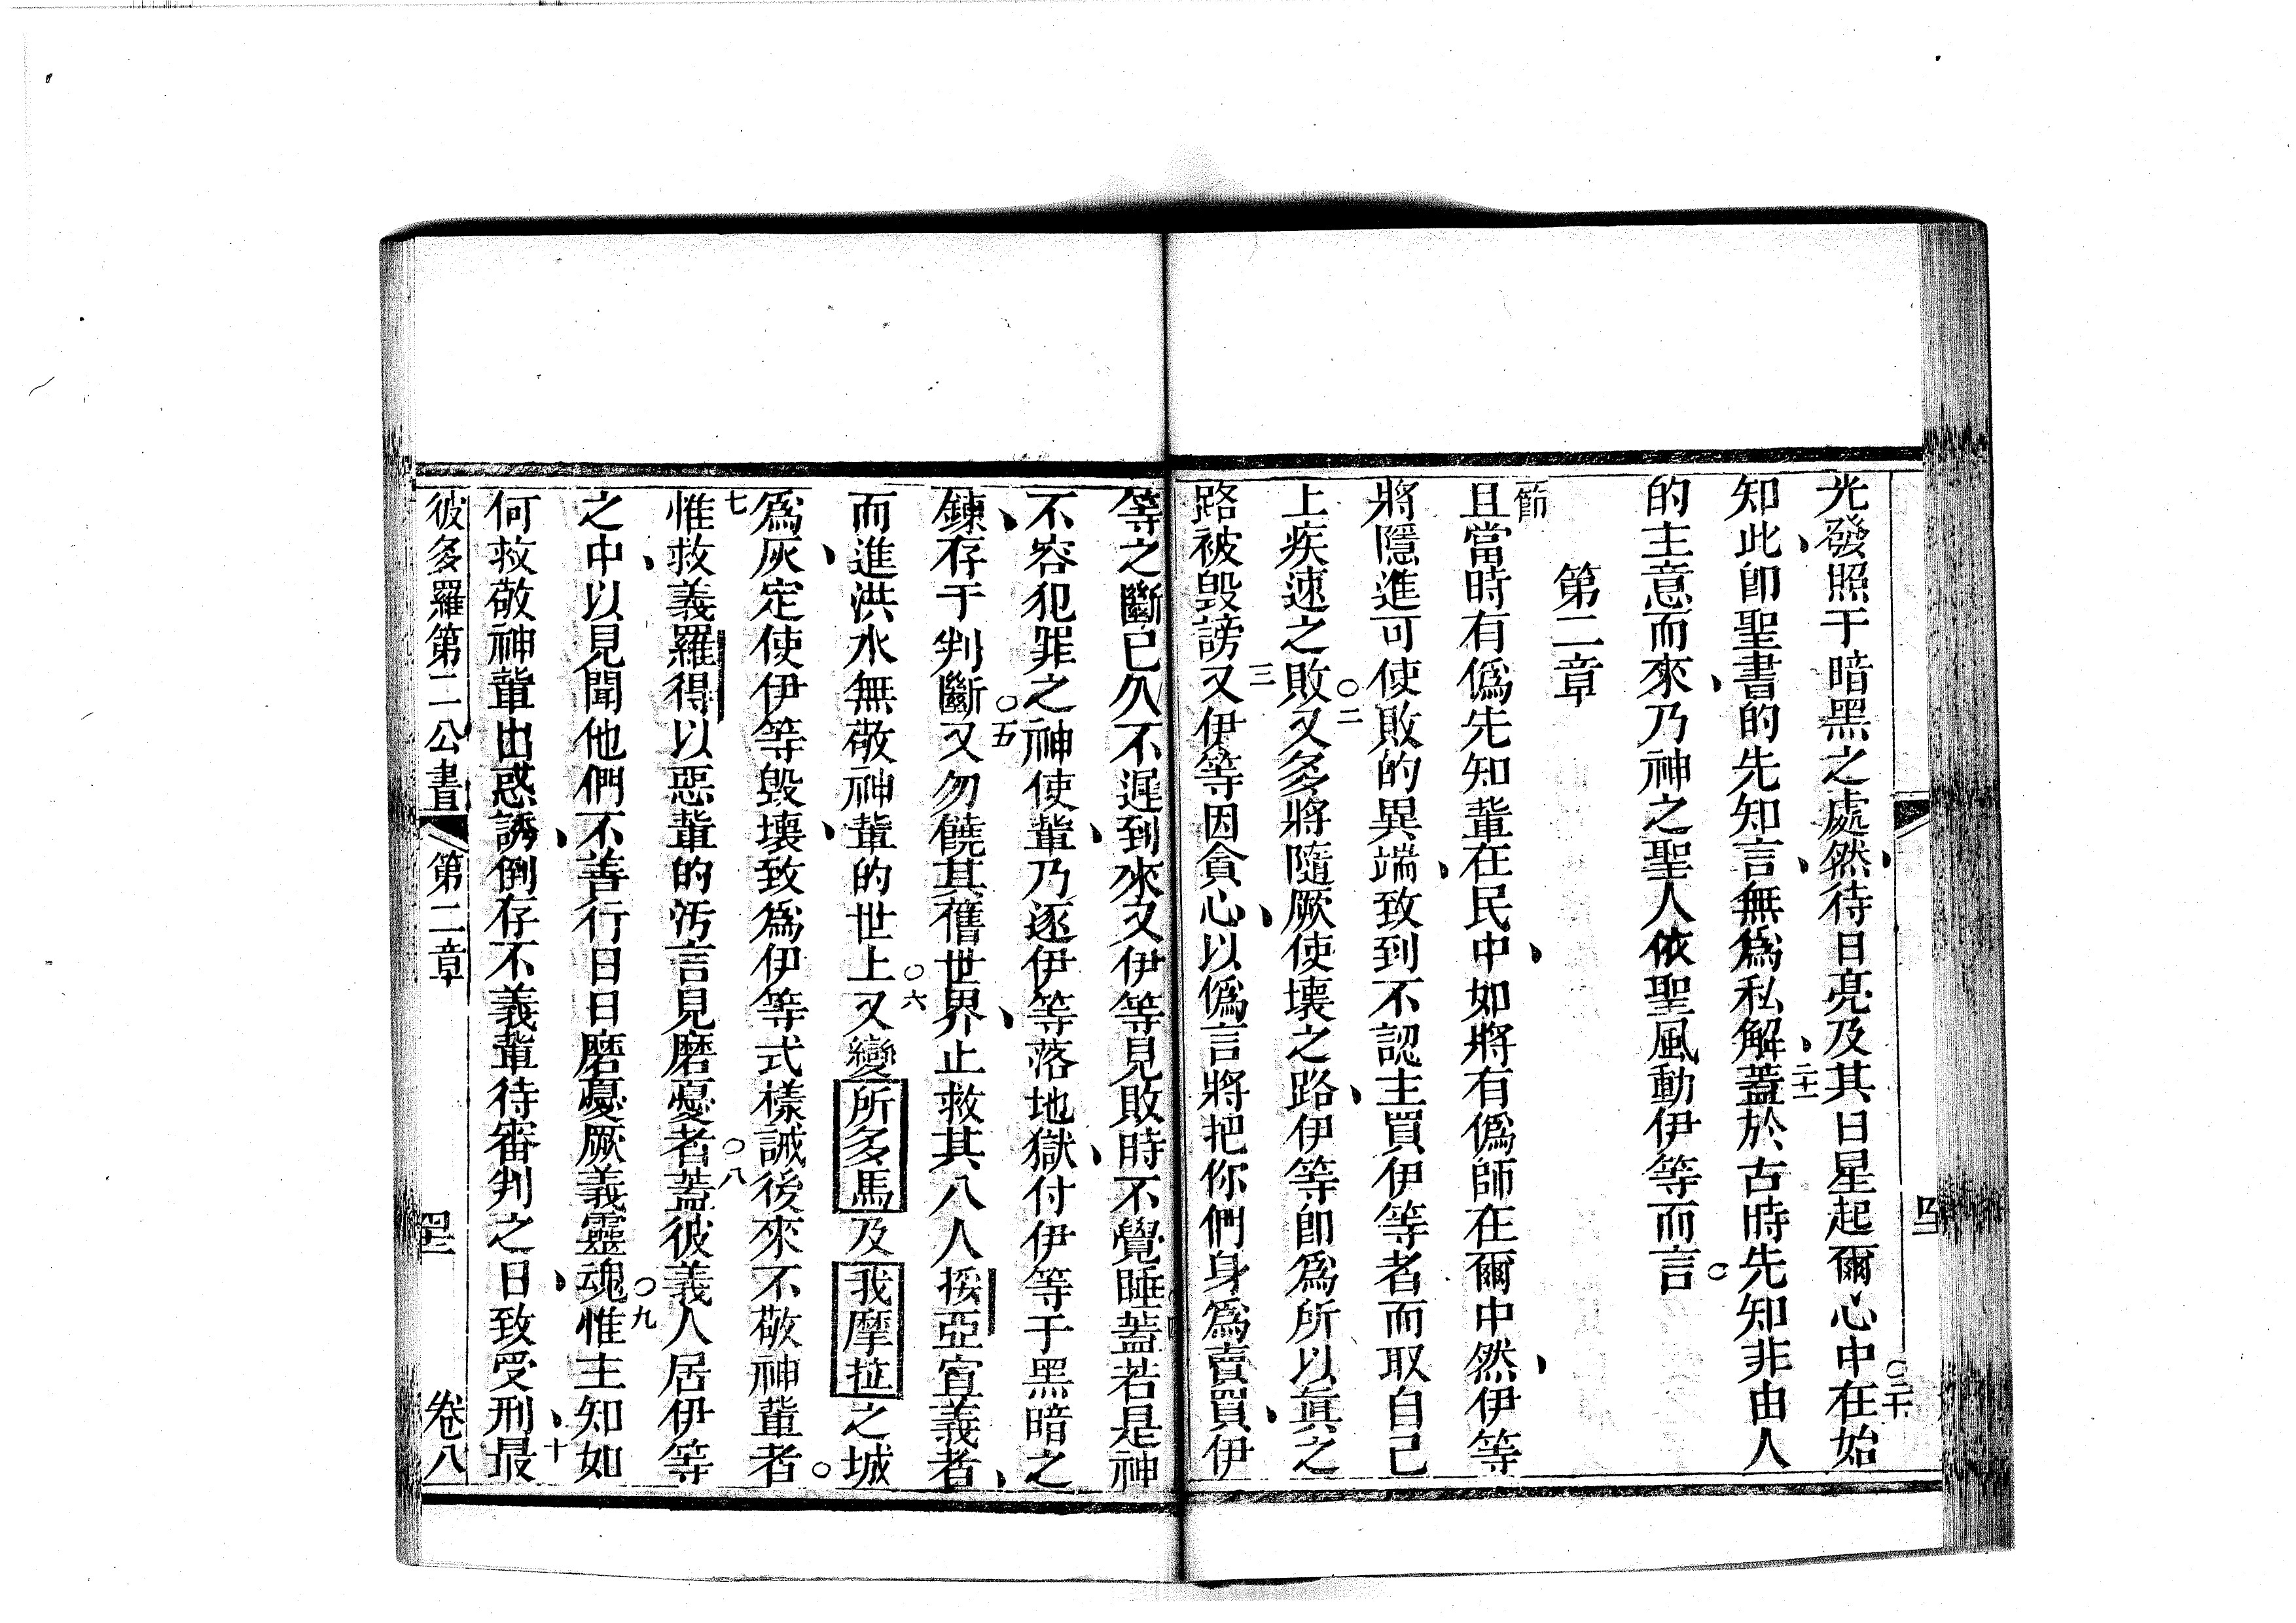 光發照于暗黑之處、然待日亮及其日星起爾心中○二十在始
知此、卽聖書的先知言、無爲私解、二十一蓋於古時先知非由人
的主意而來、乃神之聖人依聖風動伊等而言○
第二章
節
且當時有僞先知輩在民中、如將有僞師在爾中、然伊等
將隱進可使敗的異端、致到不認主買伊等者而取自己
上疾速之敗○二又多將隨厥使壞之路、伊等卽爲所以眞之
路被毀謗三又伊等因貪心、以僞言將把你們身爲賣買、伊
等之斷已久不遲到來又伊等見敗時不覺睡蓋若是神
不容犯罪之神使輩、乃逐伊等落地獄、付伊等于黑暗之
鍊、存于判斷○五又勿饒其舊世界、止救其八人挼亞宣義者、
而進洪水無敬神輩的世上○六又變所多馬及我摩拉之城
爲灰、定使伊等毀壞、致爲伊等式樣誡後來不敬神輩者○
七惟救義羅得以惡輩的汚言見磨憂者○八蓋彼義人居伊等
之中、以見聞他們不善行日日磨憂厥義靈魂○九惟主知如
何救敬神輩出惑誘、倒存不義輩待審判之日、致受刑、十最
彼多羅第二公書
第二章
卷八